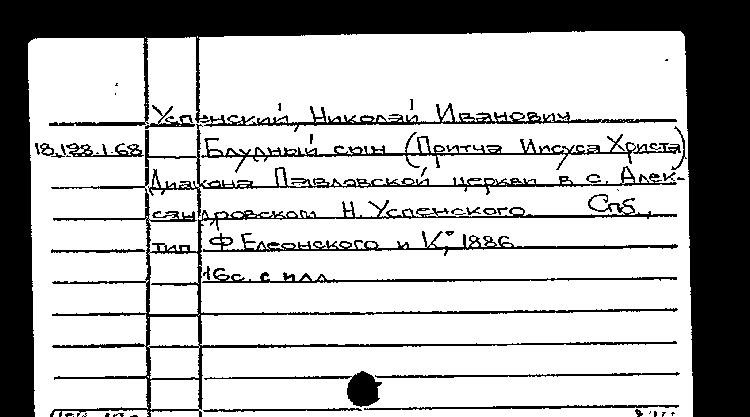 Успенский, Николай Иванович
18.198.1.68 Блудный сын (Притча Иисуса Христа)
Диакона Павловской церкви в с. Алек-
сандровском Н. Успенского. Спб.,
тип Ф Елеонского и К°, 1886
16с. с илл.